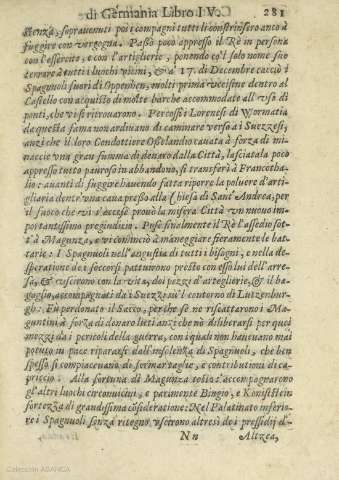 di Germania Libro IV. 281
stenza, sopravenuti poi i compagni tutti li constrinsero anco à
fuggire con vergogna. Passò poco appresso il Rè in persona
con l'essercito, e con l'artiglierie, ponendo co'l solo nome suo
terrore à tutti i luochi vicini, & a' 17. di Decembre cacciò i
Spagnuoli fuori di Oppenhen, molti prima uccisine dentro al
Castello con acquisto di molte barche accommodate all'uso di
ponti, che vi si ritrovarono. Percossi i Lorenesi di Wormatia
da questa fama non ardivano di caminare verso a i Suezzesi,
anzi che il loro Condottiere Ossalendo cavata à forza di mi-
naccie una gran summa di denaro dalla Città, lasciatala poco
appresso tutto pauroso in abbandono, si transferì à Francotha-
lio: avanti di fuggire havendo fatta riporre la polvere d'arti-
gliaria dentr'una cava presso alla Chiesa di Sant'Andrea, per
il fuoco che vi s'accese provò la misera Città un nuovo im-
portantissimo pregiudicio. Pose finalmente il Rè l'assedio sot-
t'à Magunza, e vi cominciò à maneggiare fieramente le bat-
tarie: I Spagnuoli nell'angustia di tutti i bisogni, e nella de-
speratione de i soccorsi pattuirono presto con esso lui dell'arre-
sa, & uscirono con la vita, doi pezzi d'artegliarie, & il ba-
goglio, accompagnati da i Suezzi sù'l contorno di Lutzenbur-
gh: Fu perdonato il Sacco, perche se ne riscattarono i Ma-
guntini à forza di denaro lieti anzi che nò di liberarsi per quel
mezzo da i pericoli della guerra, con i quali non havevano mai
potuto in pace ripararsi dall'insolenza di Spagnuoli, che ben
spesso si compiacevano di formar taglie, e contributioni di ca-
priccio: Alla fortuna di Magunza tosto s'accompagnarono
gl'altri luochi circonvicini, e parimente Bingio, e Konistein
fortezza di grandissima cõsideratione: Nel Palatinato inferio-
re i Spagnuoli senza ritegno uscirono altresì dei pressidij d'-
Nn Altzea,
Colección ABANCA